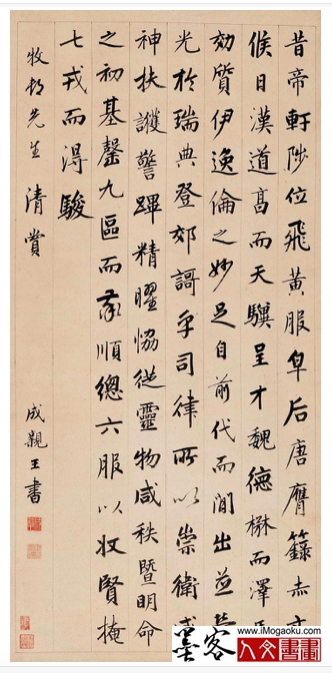 昔帝軒陟位飛黃服皁后唐膺籙赤
候日漢道高而天驥呈才魏德楙而澤
効質伊逸倫之妙足自前代而間出並
光於瑞典登郊謌乎司律所以崇衛威
神扶護警蹕精曜恊從靈物咸秩暨明命
之初基罄九區而率順總六服以收賢掩
七戎而得駿
牧邨先生清賞
成親王書
墨客
www.iMogaoku.com